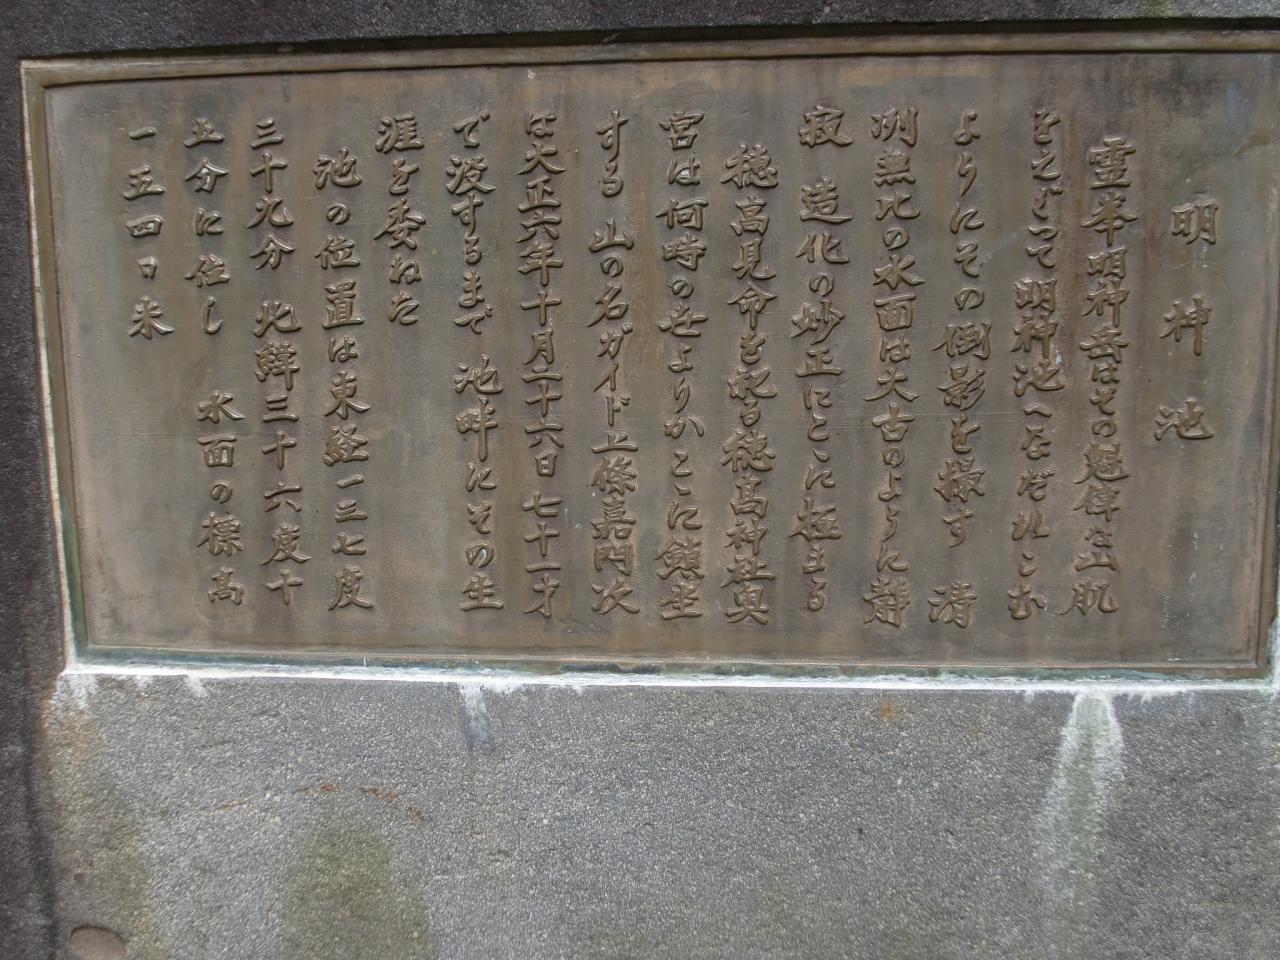 明神池
霊峯明神岳はその魁偉な山肌
をそゞって明神池へなだれこむ
よりにその倒影を操す 清
冽無比の水面は太古のように静
寂 造化の妙正にここに極まる
穂高見命を祀る穂高神社奥
宮は何時の世よりかここに鎮坐
する 山の名ガイド上條嘉門次
は大正六年十月二十六日 七十一才
で没するまで 池畔にその生
涯を委ねた
池の位置は東経一三七度
三十九分 北緯三十六度十
五分に位し 水面の標高
一五四〇米